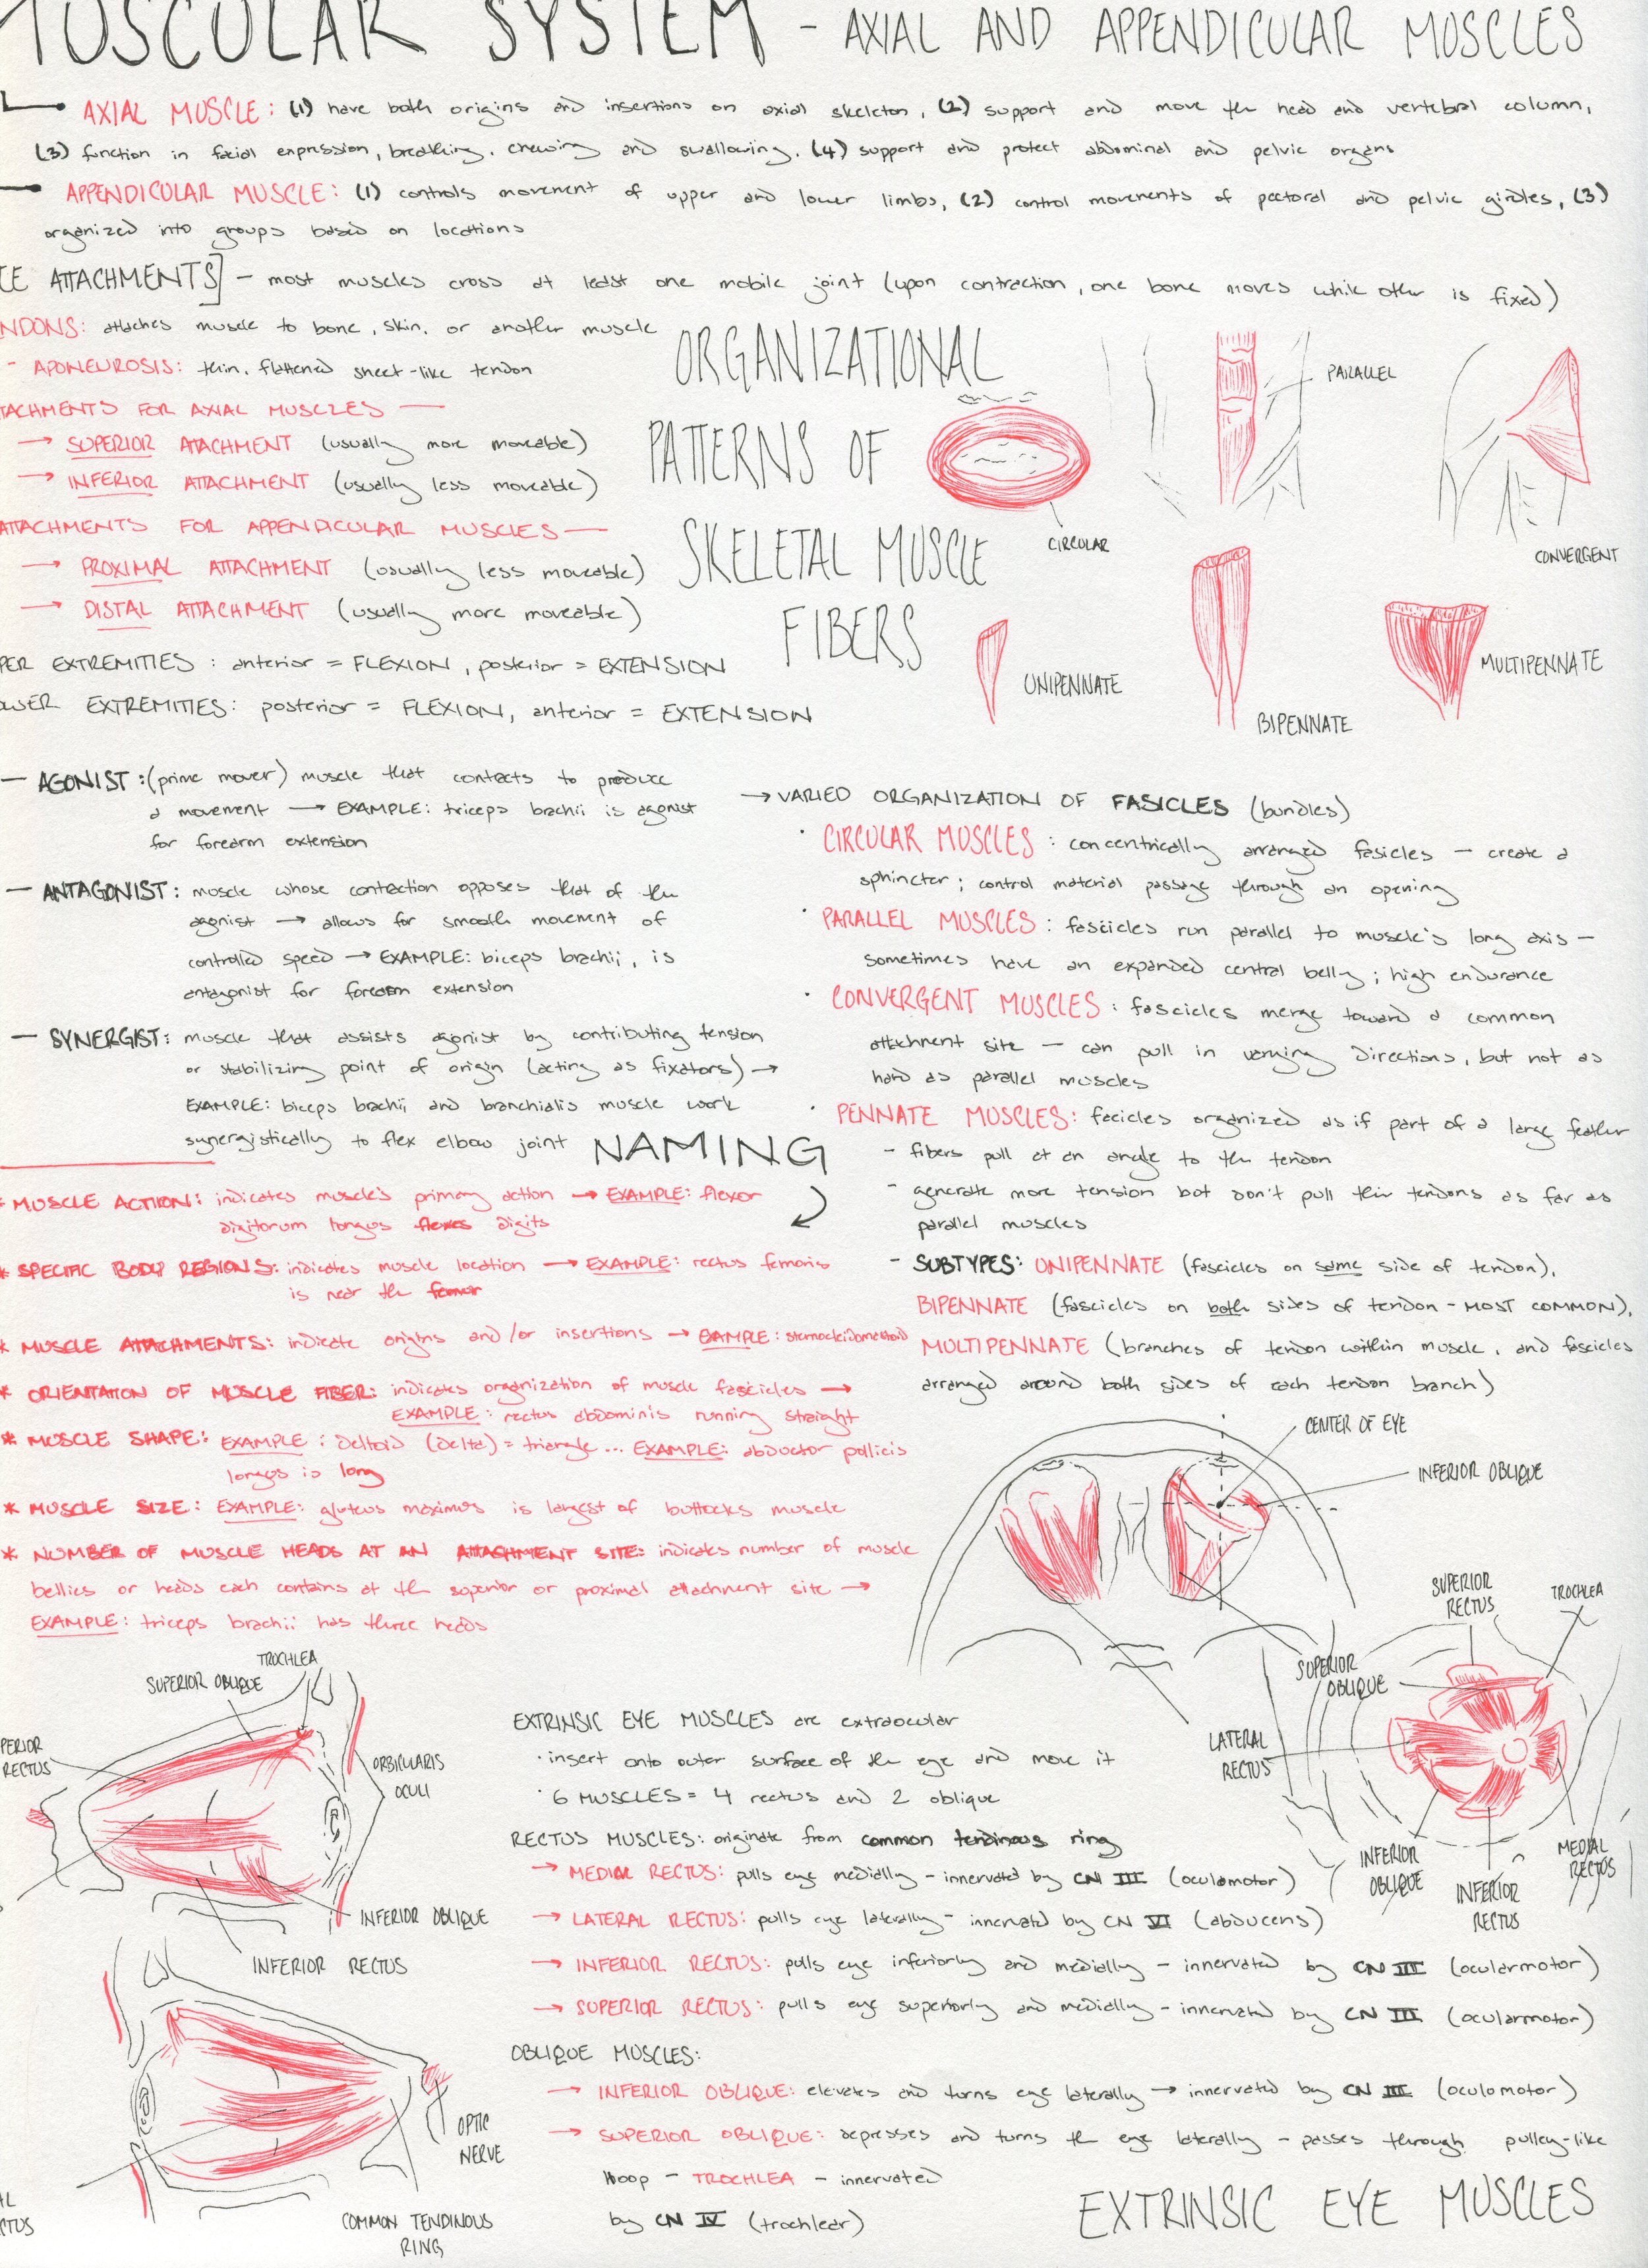 MUSCULAR SYSTEM - AXIAL AND APPENDICULAR MUSCLES
AXIAL MUSCLE: (1) have both origins and insertions on axial skeleton, (2) support and move the head and vertebral column,
(3) function in facial expression, breathing, chewing and swallowing, (4) support and protect abdominal and pelvic organs
APPENDICULAR MUSCLE: (1) controls movement of upper and lower limbs, (2) control movements of pectoral and pelvic girdles, (3)
organized into groups based on locations
CE ATTACHMENTS] - most muscles cross at least one mobile joint (upon contraction, one bone moves while other is fixed)
NDONS: attaches muscle to bone, skin, or another muscle
- APONEUROSIS: thin, flattened sheet-like tendon
TACHMENTS FOR AXIAL MUSCLES —
→ SUPERIOR ATACHMENT (usually more moveable)
→ INFERIOR ATTACHMENT (usually less moveable)
ATTACHMENTS FOR APPENDICULAR MUSCLES —
→ PROXIMAL ATTACHMENT (usually less moveable)
→ DISTAL ATTACHMENT (usually more moveable)
PER EXTREMITIES: anterior = FLEXION, posterior = EXTENSION
OWER EXTREMITIES: posterior = FLEXION, anterior = EXTENSION
ORGANIZATIONAL
PATTERNS OF
SKELETAL MUSCLE
FIBERS
CIRCULAR
PARALLEL
CONVERGENT
UNIPENNATE
BIPENNATE
MULTIPENNATE
— AGONIST: (prime mover) muscle that contacts to produce
a movement → EXAMPLE: triceps brachii is agonist
for forearm extension
— ANTAGONIST: muscle whose contraction opposes that of the
agonist → allows for smooth movement of
controlled speed → EXAMPLE: biceps brachii, is
antagonist for forearm extension
— SYNERGIST: muscle that assists agonist by contributing tension
or stabilizing point of origin (acting as fixators) →
EXAMPLE: biceps brachii and branchialis muscle work
synergistically to flex elbow joint
NAMING
* MUSCLE ACTION: indicates muscle's primary action → EXAMPLE: flexor
digitorum longus flexes digits
* SPECIFIC BODY REGIONS: indicates muscle location → EXAMPLE: rectus femoris
is near the femur
* MUSCLE ATTACHMENTS: indicate origins and/or insertions → EXAMPLE: sternocleidomastoid
* ORIENTATION OF MUSCLE FIBER: indicates organization of muscle fascicles →
EXAMPLE: rectus abdominis running straight
* MUSCLE SHAPE: EXAMPLE: deltoid (delta) = triangle... EXAMPLE: abductor pollicis
longus is long
* MUSCLE SIZE: EXAMPLE: gluteus maximus is largest of buttocks muscle
* NUMBER OF MUSCLE HEADS AT AN ATTACHMENT SITE: indicates number of muscle
bellies or heads each contains at the superior or proximal attachment site →
EXAMPLE: triceps brachii has three heads
→ VARIED ORGANIZATION OF FASICLES (bundles)
· CIRCULAR MUSCLES: concentrically arranged fasicles — create a
sphincter; control material passage through an opening
· PARALLEL MUSCLES: fascicles run parallel to muscle's long axis —
sometimes have an expanded central belly; high endurance
· CONVERGENT MUSCLES: fascicles merge toward a common
attachment site — can pull in varying directions, but not as
hard as parallel muscles
· PENNATE MUSCLES: facicles organized as if part of a large feather
- fibers pull at an angle to the tendon
- generate more tension but don't pull their tendons as far as
parallel muscles
- SUBTYPES: UNIPENNATE (fascicles on same side of tendon),
BIPENNATE (fascicles on both sides of tendon - MOST COMMON),
MULTIPENNATE (branches of tendon within muscle, and fascicles
arranged around both sides of each tendon branch)
CENTER OF EYE
INFERIOR OBLIQUE
SUPERIOR
OBLIQUE
LATERAL
RECTUS
SUPERIOR
RECTUS
TROCHLEA
INFERIOR
OBLIQUE
INFERIOR
RECTUS
MEDIAL
RECTUS
TROCHLEA
SUPERIOR OBLIQUE
PERIOR
RECTUS
ORBICULARIS
OCULI
INFERIOR OBLIQUE
INFERIOR RECTUS
OPTIC
NERVE
COMMON TENDINOUS
RING
AL
CTUS
EXTRINSIC EYE MUSCLES are extraocular
· insert onto outer surface of the eye and move it
· 6 MUSCLES = 4 rectus and 2 oblique
RECTUS MUSCLES: originate from common tendinous ring
→ MEDIAL RECTUS: pulls eye medially - innervated by CN III (oculomotor)
→ LATERAL RECTUS: pulls eye laterally - innervated by CN VI (abducens)
→ INFERIOR RECTUS: pulls eye inferiorly and medially - innervated by CN III (ocularmotor)
→ SUPERIOR RECTUS: pulls eye superiorly and medially - innervated by CN III (ocularmotor)
OBLIQUE MUSCLES:
→ INFERIOR OBLIQUE: elevates and turns eye laterally → innervated by CN III (oculomotor)
→ SUPERIOR OBLIQUE: depresses and turns the eye laterally - passes through pulley-like
hoop - TROCHLEA - innervated
by CN IV (trochlear)
EXTRINSIC EYE MUSCLES